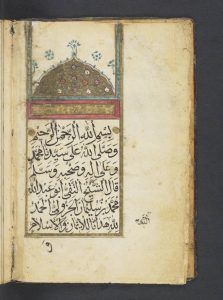 بسم الله الرحمن الرحيم
وصلى الله على سيدنا محمد
وعلى اله وصحبه وسلم
قال الشيخ الفقيه ابو عبد الله
محمد بن سليمان الجزولي الحمد
لله هدانا للايمان والاسلام